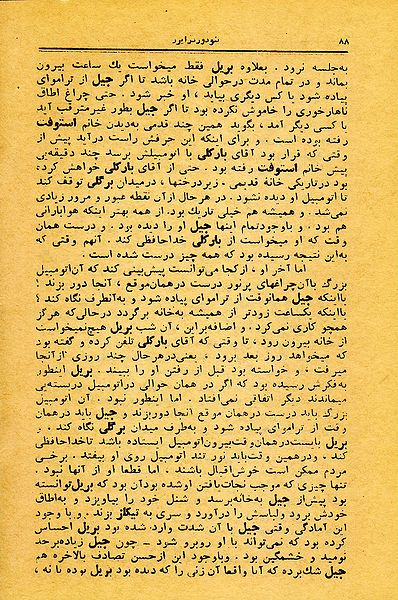 ۸۸
تئودور درایزر
به‌جلسه نرود. بعلاوه بریل فقط میخواست یك ساعت بیرون
بماند و در تمام مدت درحوالی خانه باشد تا اگر جیل از تراموای
پیاده شود یا کس دیگری بیاید، او خبر شود. حتی چراغ اطاق
ناهارخوری را خاموش نکرده بود تا اگر جیل بطور غیرمترقب آید
یا کسی دیگر آمد، بگوید همین چند قدمی به‌دیدن خانم استوفت
رفته بوده است. و برای اینکه این حرفش راست درآید پیش از
وقتی که قرار بود آقای بارکلی با اتومبیلش برسد چند دقیقه‌یی
پیش خانم استوفت رفته بود. حتی از آقای بارکلی خواهش کرده
بود درتاریکی خانه قدیمی، زیردرختها، درمیدان برگلی توقف کند
تا اتومبیل او دیده نشود. در هرحال ازآن نقطه عبور و مرور زیادی
نمی‌شد. و همیشه هم خیلی تاریك بود. از همه بهتر اینکه هوابارانی
هم بود. و باوجودتمام اینها جیل او را دیده بود. و درست همان
وقت که او میخواست از بارکلی خداحافظی کند. آنهم وقتی که
به‌این نتیجه رسیده بود که همه چیز درست شده است.
اما آخر او، ازکجا می‌توانست پیش‌بینی کند که آن‌اتومبیل
بزرگ باآن‌چراغهای پرنور درست درهمان‌موقع، آنجا دور بزند!
یااینکه جیل همانوقت از تراموای پیاده شود و به‌آنطرف نگاه کند؟
یااینکه یکساعت زودتر از همیشه به‌خانه برگردد درحالی‌که هرگز
همچو کاری نمی‌کرد. و اضافه‌براین، آن شب بریل هیچ‌نمیخواست
از خانه بیرون رود، تا وقتی که آقای بارکلی تلفن کرده و گفته بود
که میخواهد روز بعد برود، یعنی‌درهرحال چند روزی ازآنجا
میرفت، و خواسته بود قبل از رفتن او را ببیند. بریل اینطور
به‌فکرش رسیده بود که اگر در همان حوالی دراتومبیل دربسته‌یی
میماندند دیگر اتفاقی نمی‌افتاد. اما اینطور نبود. آن اتومبیل
بزرگ باید درست درهمان موقع آنجا دوربزند و جیل باید درهمان
وقت از تراموای پیاده شود و به‌طرف میدان برگلی نگاه کند. و
بریل بایست‌درهمان‌وقت‌بیرون‌اتومبیل ایستاده باشد تاخداحافظی
کند. ودرهمین وقت‌باید نور تند اتومبیل روی او بیفتد. برخی
مردم ممکن است خوش‌اقبال باشند. اما قطعا او از آنها نبود.
تنها چیزی که موجب نجات‌یافتن اوشده بودآن بود که بریل‌توانسته
بود پیش‌از جیل به‌خانه‌برسد و شنل خود را بیاویزد و به‌اطاق
خودش برود ولباسش را درآورد و سری به تیکاز بزند. و با وجود
این آمادگی وقتی جیل با آن شدت وارد شده بود بریل احساس
کرده بود که نمی‌تواند با او روبرو شود ـ چون جیل زیاده‌برحد
نومید و خشمگین بود. وباوجود این ازحسن تصادف بالاخره هم
جیل شك‌برده که آیا واقعا آن زنی را که دیده بود بریل بوده یا نه،